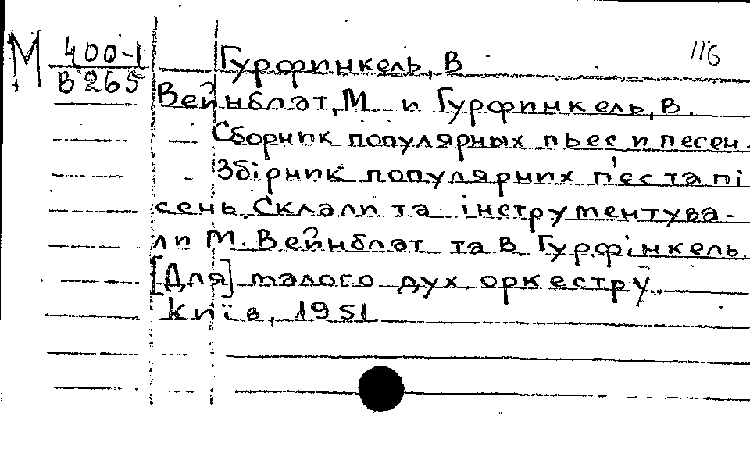 М 400-1 Гурфинкель, В 116
В265
Вейнблат, М и Гурфинкель, В.
Сборник популярных пьес и песен.
Збірник популярних п'ес та пі
сень. Склали та інструментува-
ли М. Вейнблат та В Гурфінкель.
[Для] малого дух оркестру.
Київ, 1951